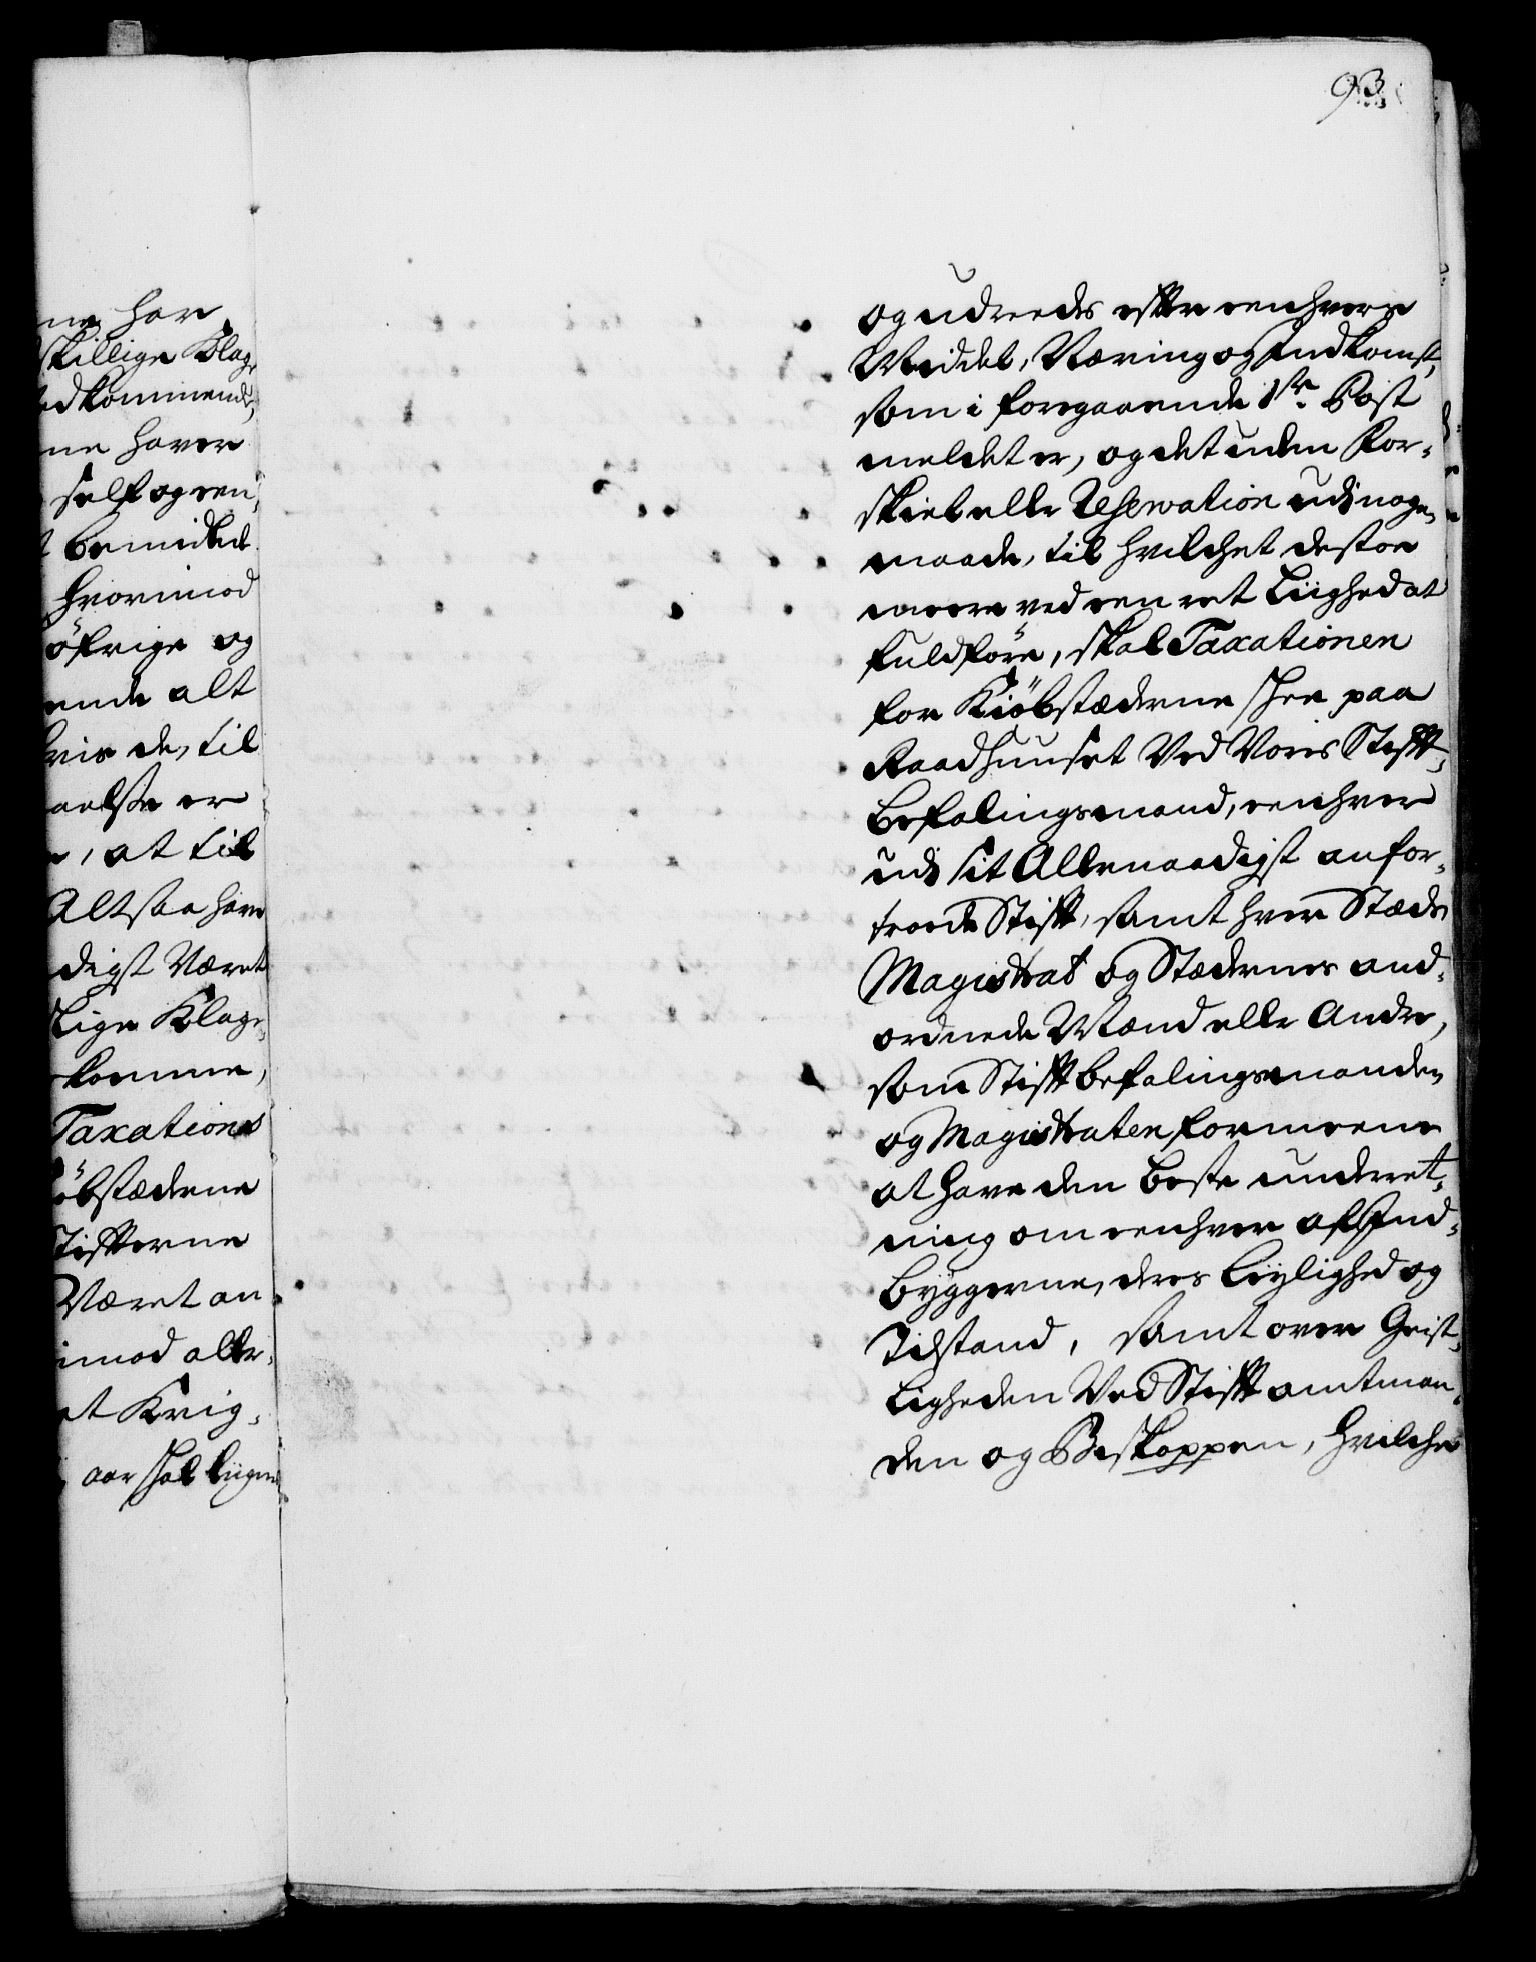 93
ne har
skillige Klag,
edkommende,
ne haver
self og een,
t bemidlet
hvorimod
öfrige og
ende alt
vis de, til
aelste er
, at til
Altsaa have
digst Været
lige Klage,
komme,
Taxations
öbstæderne
Stifterne
Været an
imod aller,
et Krig,
aar skal liigne
og udreedes efter eenhvers
Middel, Næring og Indkomst,
som i foregaaende 1ste Post
meldet er, og det uden For-
skiel eller Reservation udi nogen
maade, til hvilchet destoe
meere ved een ret Liighed at
fuldföre, skal Taxationen
for Kiöbstæderne skee paa
Raadhuuset Ved Vores Stift-
Befalingsmand, eenhver
udi sit Allernaadigst anfor-
troede Stift, samt hver Stæds
Magistrat og Stædernes and-
ordnede Mænd eller Andre,
som Stiftbefalingsmanden
og Magistraten formeene
at have den beste underret-
ning om eenhver af Ind-
byggerne, deres Leylighed og
Tilstand, samt over Geist-
ligheden Ved Stiftamtman-
den og Biskoppen, hvilche